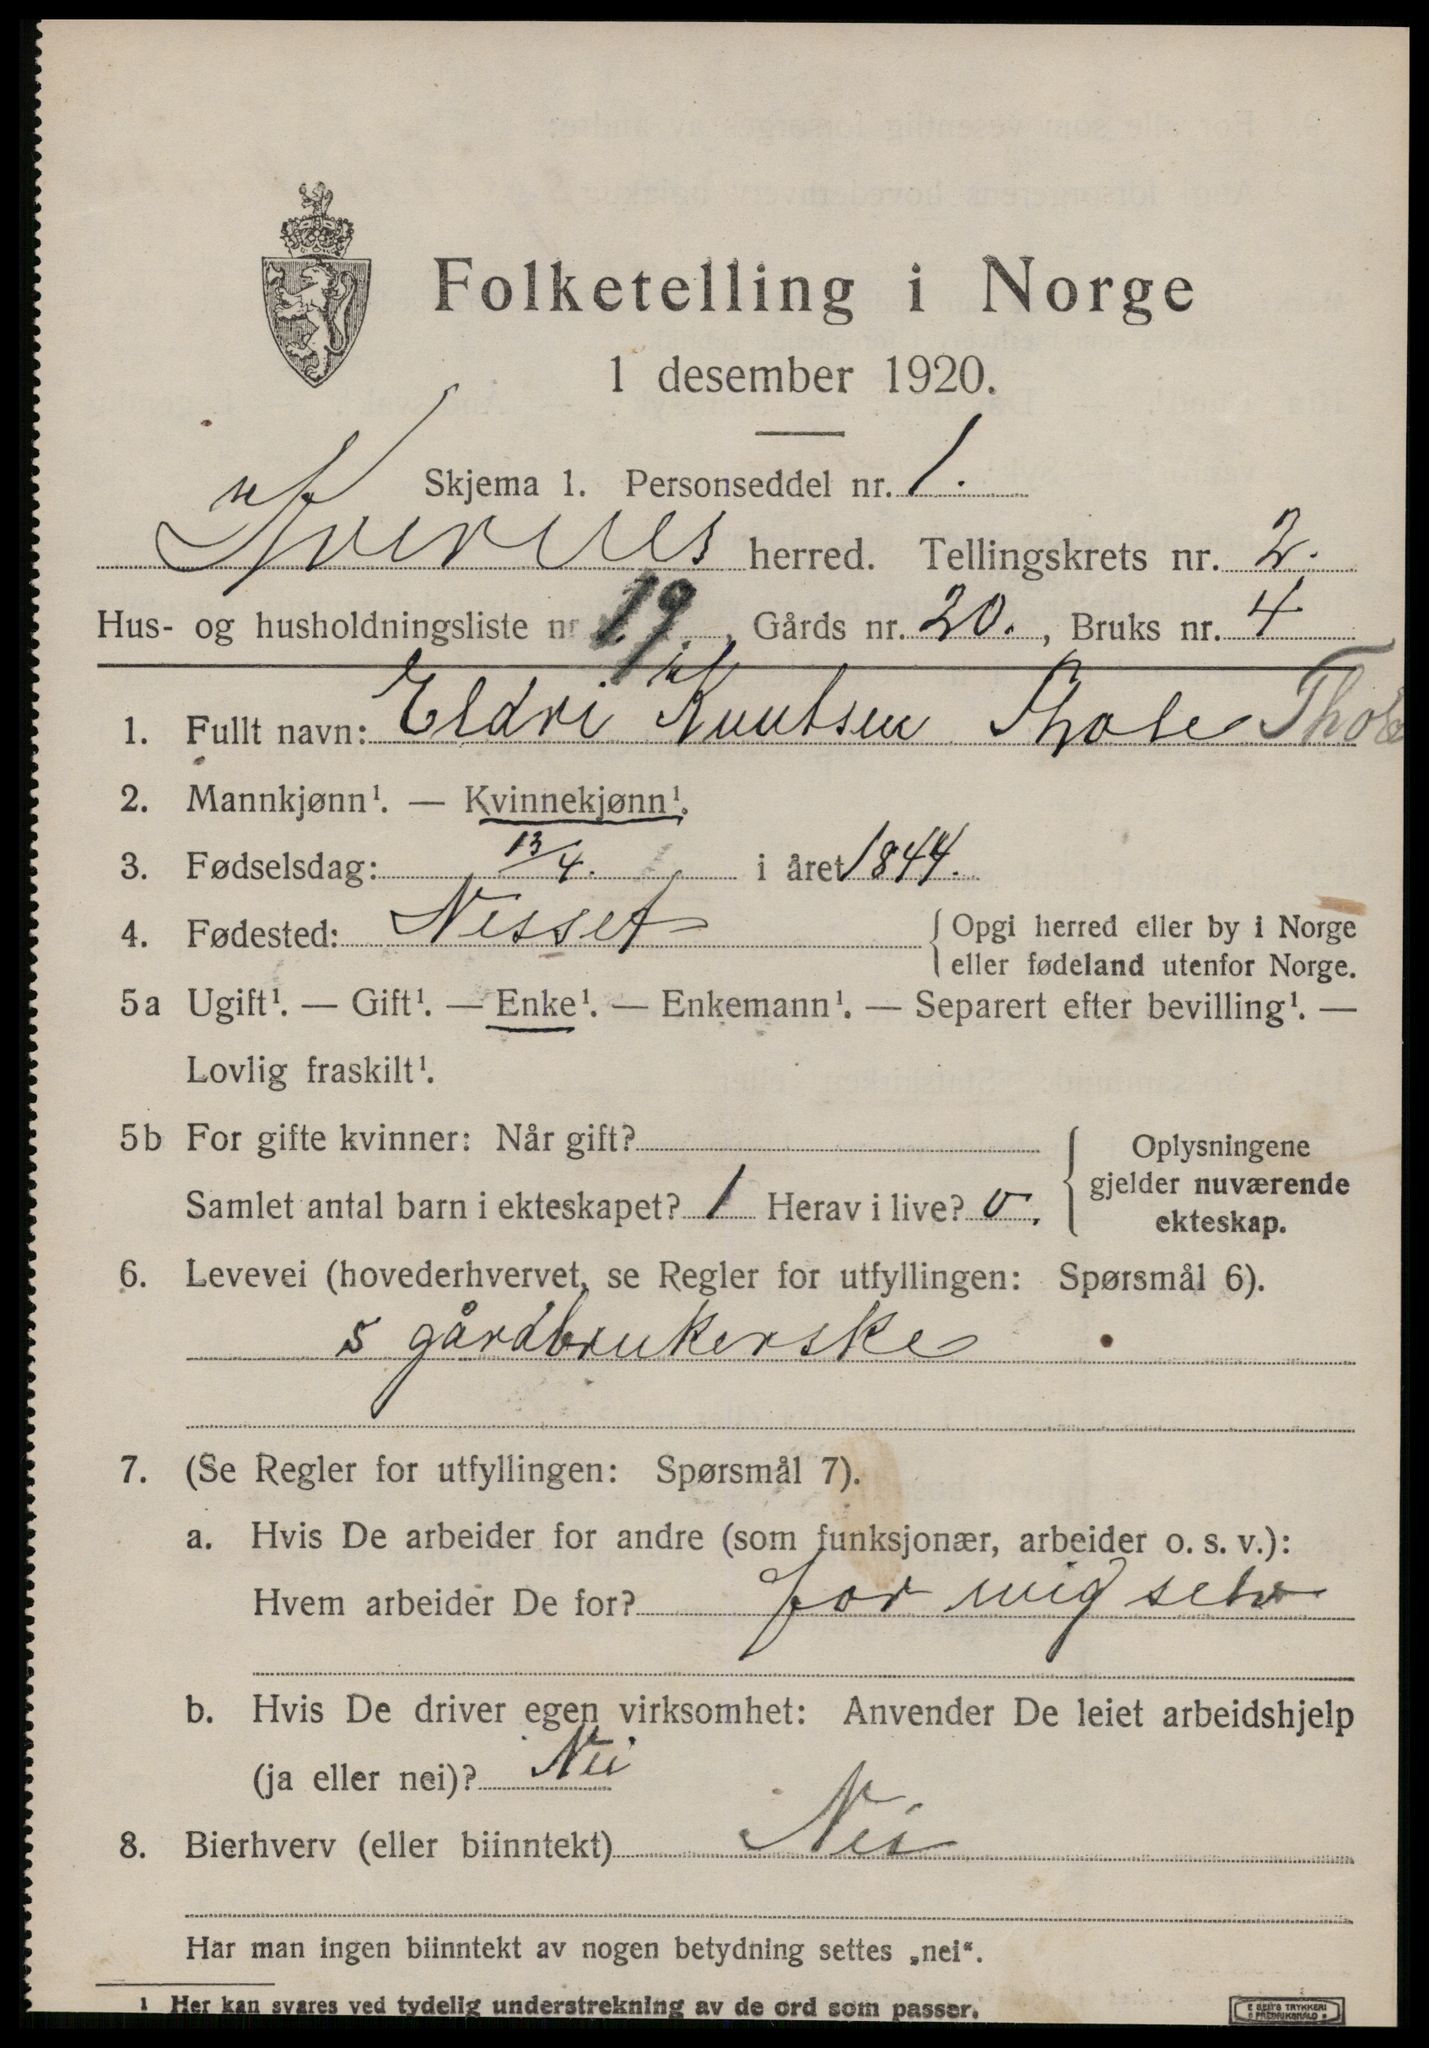 Folketelling i Norge
1 desember 1920.
Skjema 1. Personseddel nr. 1.
Kvernes herred. Tellingskrets nr. 2.
Hus- og husholdningsliste nr 19. , Gårds nr. 20. , Bruks nr. 4
1. Fullt navn: Eldri Knutsen Thole Thole
2. Mannkjønn¹. — Kvinnekjønn¹.
3. Fødselsdag: 13/4. i året 1844.
4. Fødested: Nesset { Opgi herred eller by i Norge
eller fødeland utenfor Norge.
5a Ugift¹. — Gift¹. — Enke¹. — Enkemann¹. — Separert efter bevilling¹. —
Lovlig fraskilt¹.
5b For gifte kvinner: Når gift? { Oplysningene
gjelder nuværende
ekteskap.
Samlet antal barn i ekteskapet? 1 Herav i live? 0.
6. Levevei (hovederhvervet, se Regler for utfyllingen: Spørsmål 6).
s gårdbrukerske
7. (Se Regler for utfyllingen: Spørsmål 7).
a. Hvis De arbeider for andre (som funksjonær, arbeider o. s. v.):
Hvem arbeider De for? for mig selv
b. Hvis De driver egen virksomhet: Anvender De leiet arbeidshjelp
(ja eller nei)? Nei
8. Bierhverv (eller biinntekt) Nei
Har man ingen biinntekt av nogen betydning settes „nei“.
1 Her kan svares ved tydelig understrekning av de ord som passer.
E SEITS TRYKKERI
FREDRIKSHALD